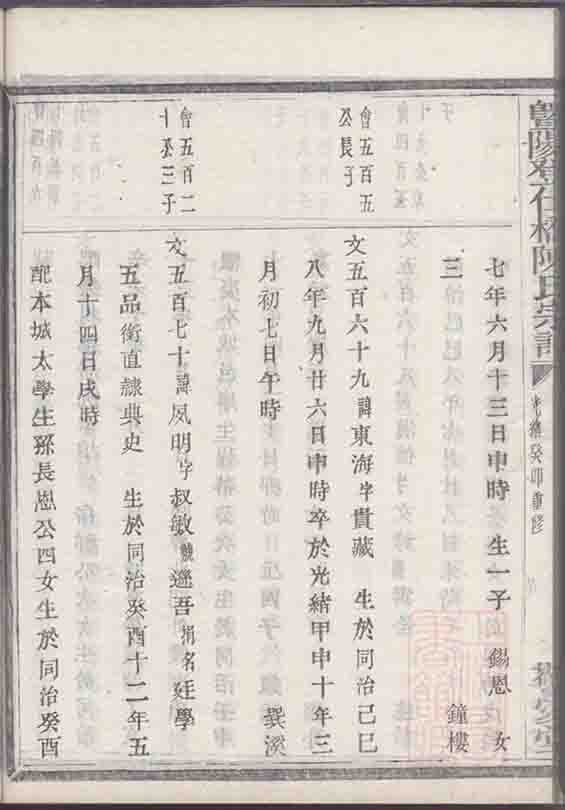 陳氏宗譜
光緒癸卯重修
七年六月十三日申時 生一子 錫恩 女
三 鐘樓
會五百五
公長子
文五百六十九諱東海字貴藏 生於同治己巳
八年九月廿六日申時卒於光緒甲申十年三
月初七日午時 巽溪
會五百二
十公三子
文五百七十諱鳳明字叔敏號遜吾捐名廷學
五品銜直隸典史 生於同治癸酉十二年五
月十四日戌時
配本城太學生孫長恩公四女生於同治癸酉